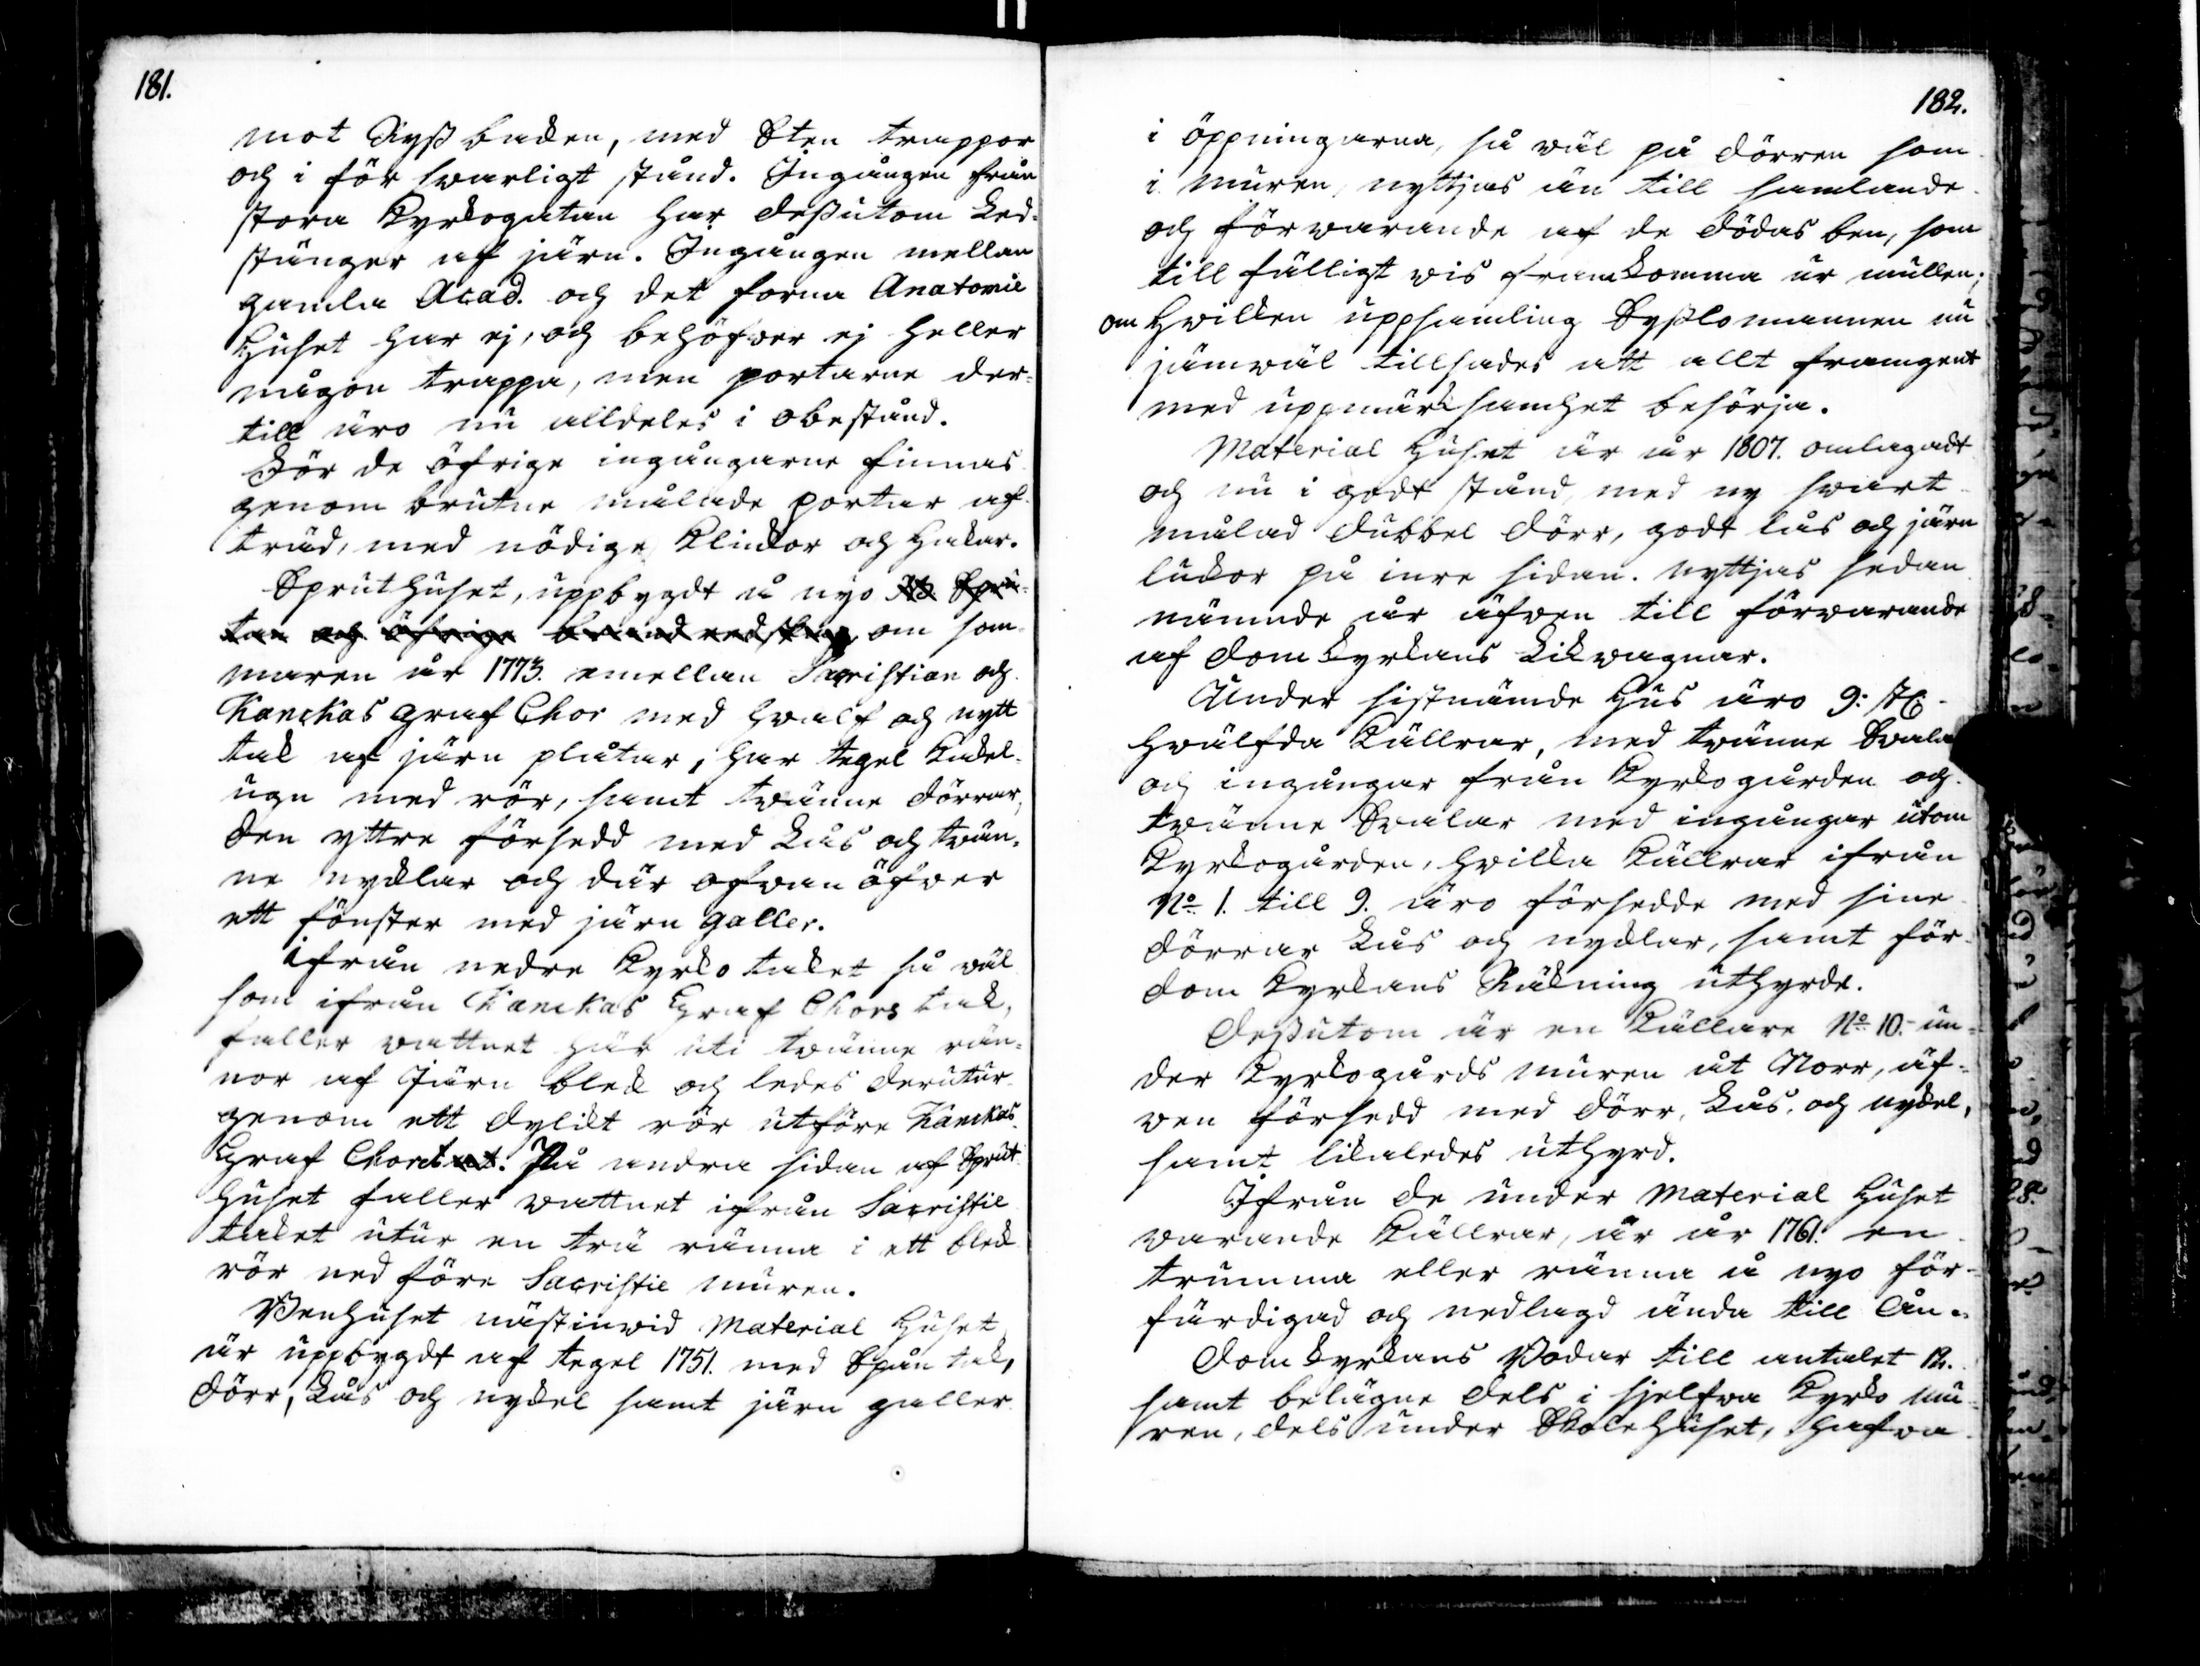 181.
mot Ryssbacken, med Sten trappor
och i försvarligt stånd. Ingången från
stora Kyrkogatan har dessutom Led-
stänger af järn. Ingången mellan
gamla Acad. och det forna Anatomie
Huset har ej, och behöfver ej heller
någon trappa, men portarne der-
till äro nu alldeles i obestånd.
För de öfrige ingångarne finnas
genom brutne målade portar af
träd, med nödige Klinkor och Hakar.
Spruthuset, uppbygdt å nyo för Spru-
tan och öfrige brandredskap om som-
maren år 1773. emellan Sacristian och
Kanckas Graf Chor med hvalf och nytt
tak af järn plåtar, har tegel kakel-
ugn med rör, samt tvänne dörrar,
den yttre försedd med Lås och tvän-
ne nycklar och där ofvan öfver
ett fönster med järn galler.
ifrån nedre Kyrko taket så väl
som ifrån Kanckas Graf Chors tak,
faller vattnet här uti tvänne rän-
nor af Järn bleck och ledes derutur
genom ett dylikt rör utföre Kanckas
Graf Choret. På andra sidan af Sprut
huset faller vattnet ifrån Sacristie
taket utur en trä ränna i ett bleck
rör nedföre Sacristie muren.
Benhuset nästinvid Material Huset
är uppbygdt af tegel 1751. med Spån tak,
dörr, Lås och nyckel samt järn galler
182.
i öppningarna, så väl på dörren som
i muren, nyttjas än till samlande
och förvarande af de dödas ben, som
till fälligt vis framkomma ur mullen;
om Hvilken uppsamling Sysslomannen nu
jämväl tillsades att allt framgent
med uppmärksamhet besörja.
Material Huset är år 1807. omlagadt
och nu i godt stånd, med ny svart
målad dubbel dörr, godt lås och järn
luckor på inre sidan. nyttjas sedan
nämnde år äfven till förvarande
af Domkyrkans Likvagnar.
Under sistnämde Hus äro 9: st.
Hvälfda Källrar, med tvänne Svala
och ingångar från Kyrkogården och
tvänne Svalar med ingångar utom
Kyrkogården, hvilka Källrar ifrån
No. 1. till 9. äro försedde med sine
dörrar Lås och nycklar, samt för
Dom Kyrkans Räkning uthyrde.
Dessutom är en Källare No. 10.- un-
der Kyrkogårds muren åt Norr, äf-
ven försedd med dörr, Lås, och nyckel,
samt likaledes uthyrd.
Ifrån de under Material Huset
varande Källrar, är år 1761. en
trumma eller ränna å nyo för-
färdigad och nedlagd ända till Ån.
Domkyrkans Bodar till antalet 12.
samt belägne dels i sjelfva Kyrko mu-
ren, dels under Skolehuset, hafva